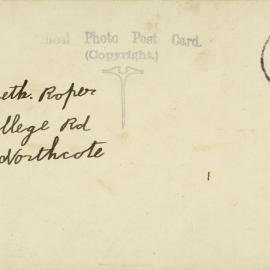 Real Photo Post Card.
(Copyright.)
eth. Roper
llege Rd
Northcote